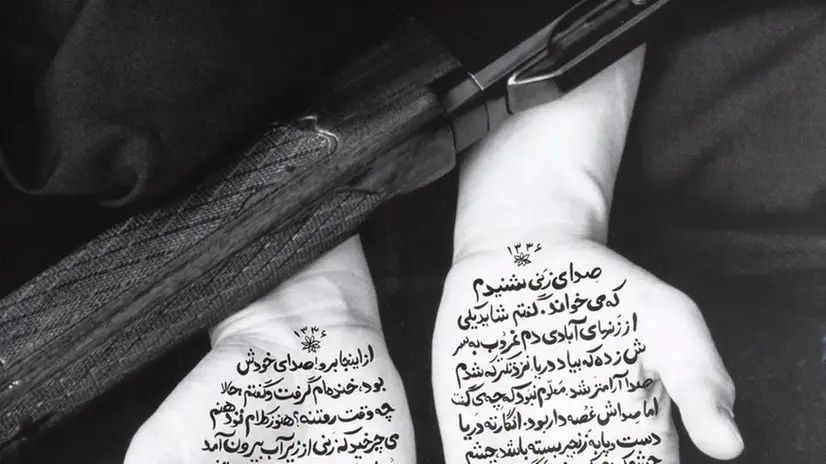 ۱۳۳۶
صدای زنی شنیدم
که می خواند. گفتم شاید یکی
از زنهای آبادی دم غروب به سر
ش زده که بیاد دریا. نزدیکتر که شدم
صدا آرامتر شد. معلوم نبود که چه می گفت
اما صداش غصه دار بود. انگار ته دریا
دست و پا به زنجیر بسته باشد. چشم
۱۳۳۶
از اینجا برو! صدای خودش
بود. خنده ام گرفت و گفتم حالا
چه وقت رفتنه؟ هنوز کلام تو دهنم
می چرخید که زنی از زیر آب بیرون آمد